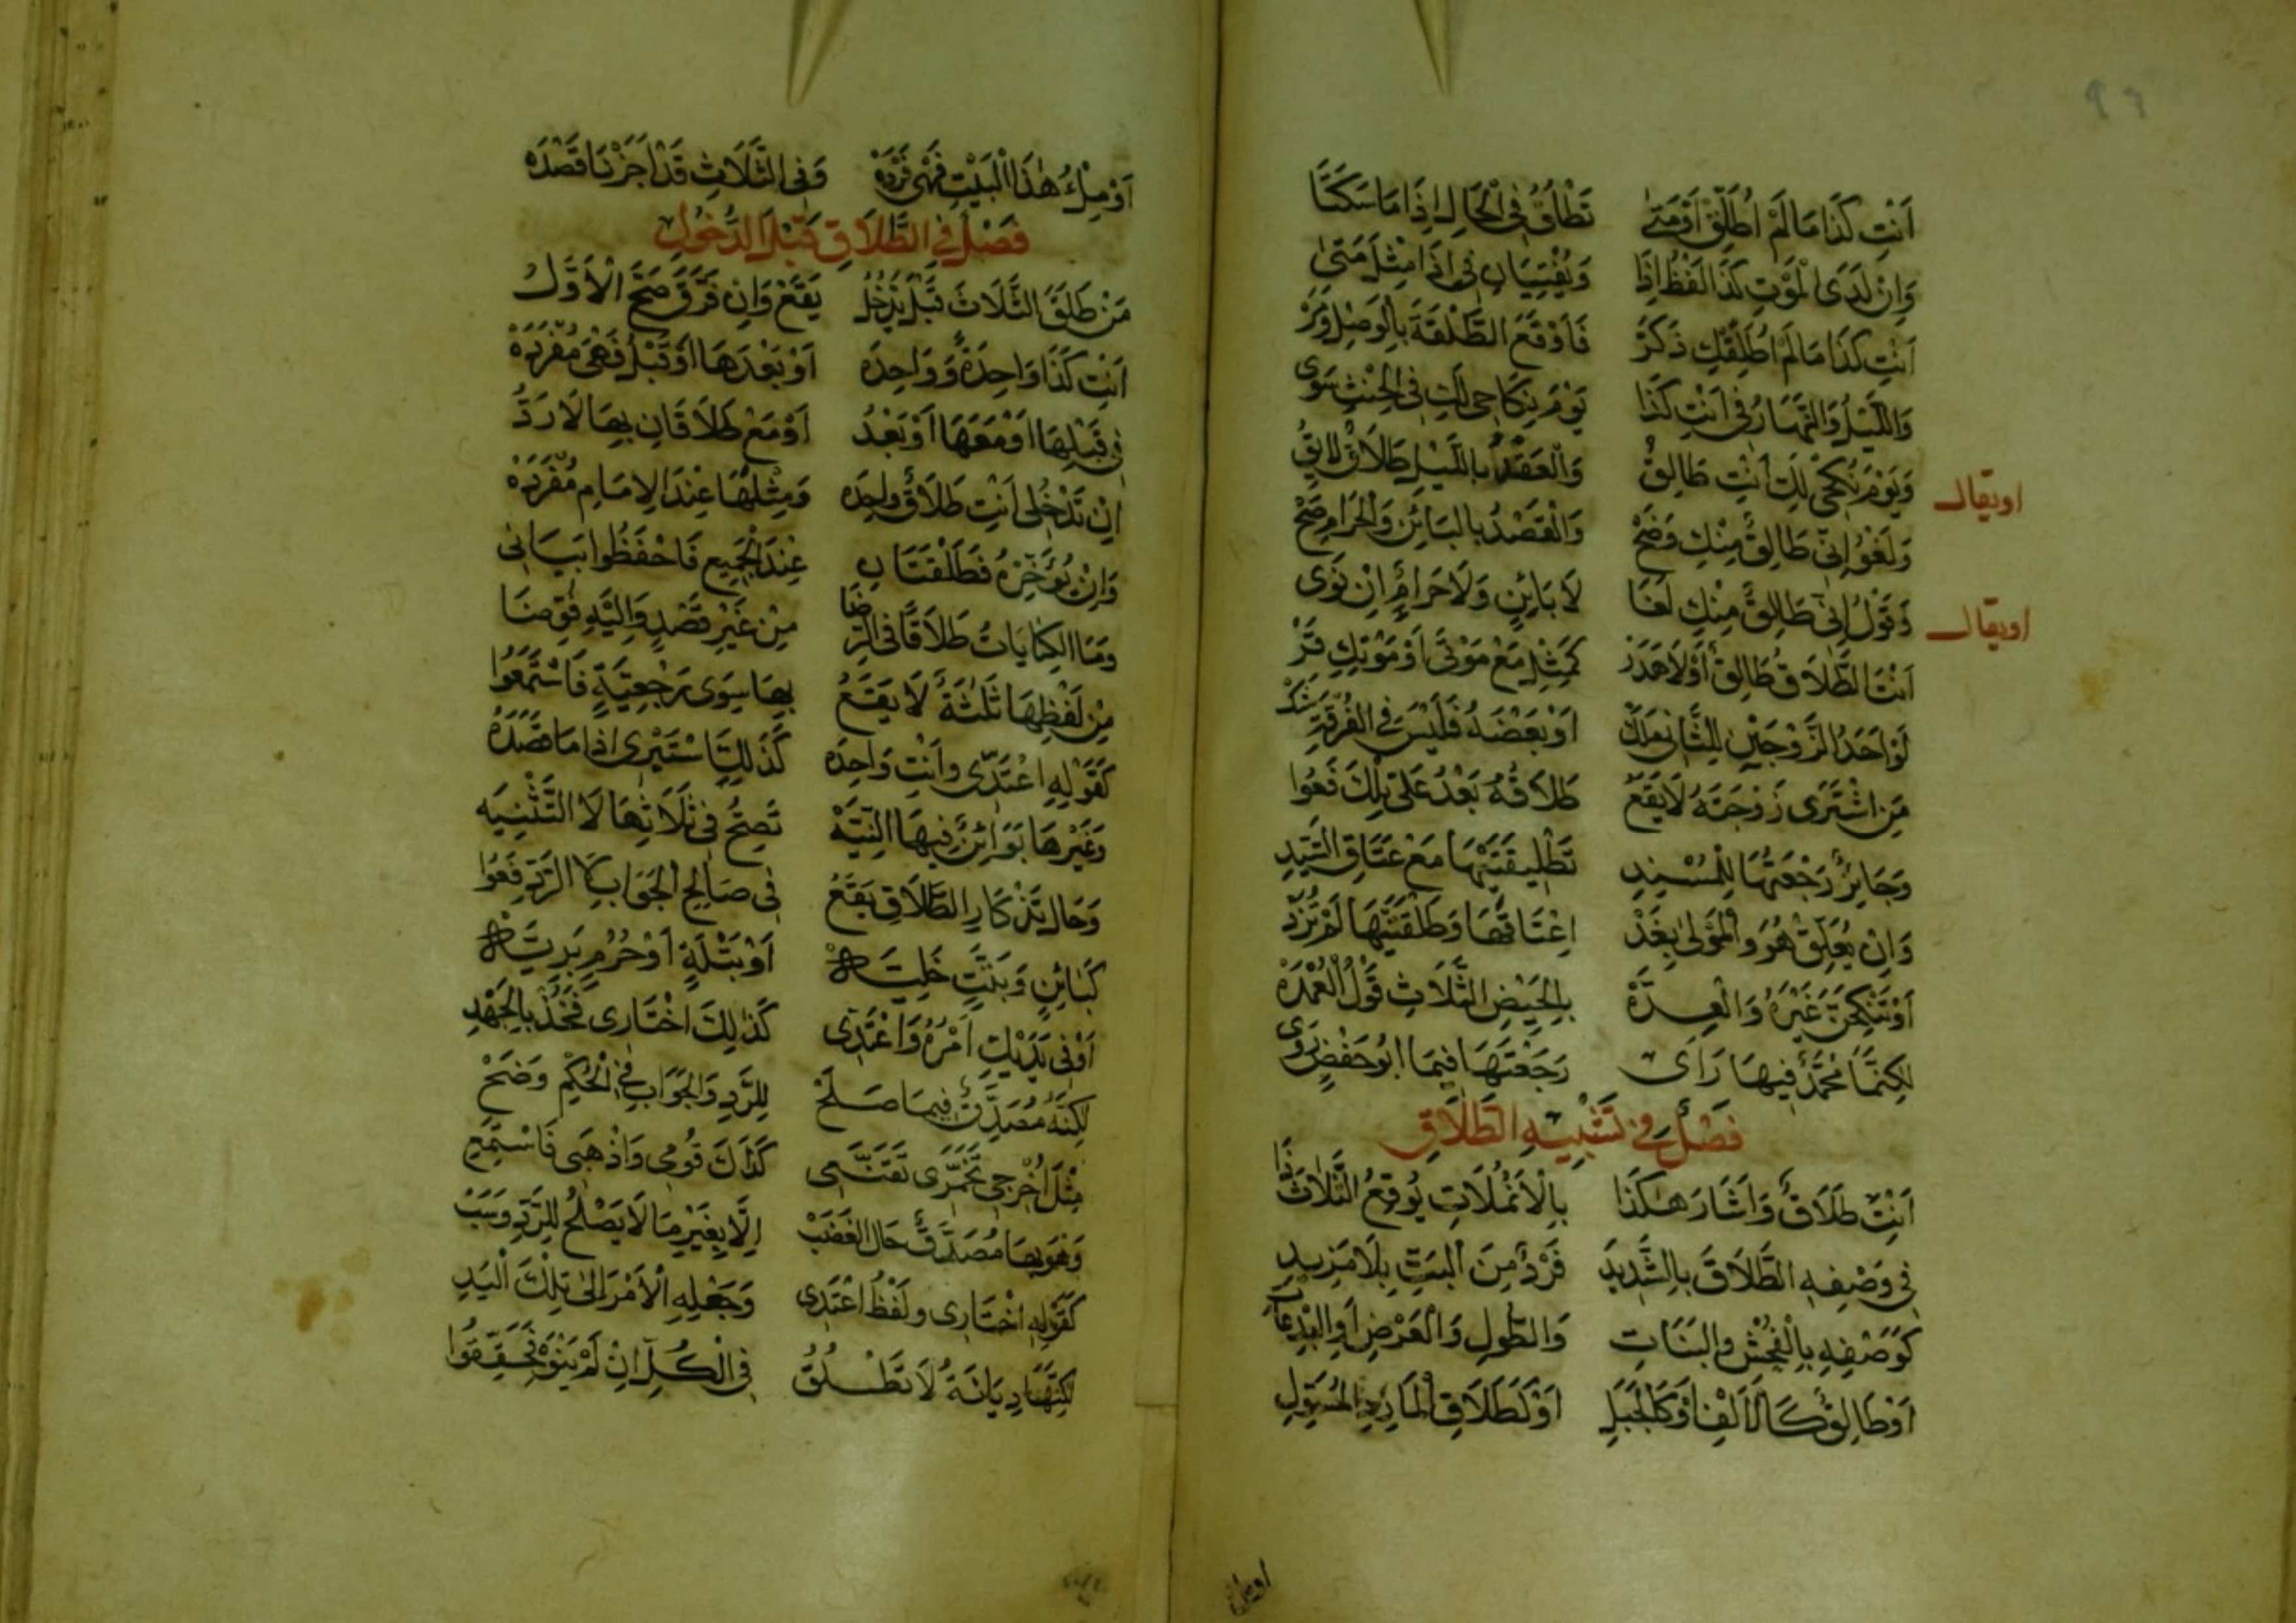 ٩٩
اَنْتِ كَذَا مَا لَمْ اُطَلِّقْ اَوْ مَتٰى تَطْلُقُ فِى الْحَالِ اِذَا مَا سَكَتَا
وَاِنْ لَدَى الْمَوْتِ كَذَا لَفْظُ اِذَا وَيُفْتِيَانِ فِى اِذَا مِثْلَ مَتٰى
اَنْتِ كَذَا مَا لَمْ اُطَلِّقْكِ ذَكَرْ فَاَوْقَعَ الطَّلْقَةَ بِالْوَصْلِ
وَاللَّيْلُ وَالنَّهَارُ فِى اَنْتِ كَذَا يَوْمَ نِكَاحِى لَكِ فِى الْحِنْثِ سَوٰى
اويقال
وَيَوْمَ نُكْحِى لَكِ اَنْتِ طَالِقُ وَالْعَقْدُ بِاللَّيْلِ طَلَاقٌ لَايِقُ
وَلَغْوُ اِنِّى طَالِقٌ مِنْكِ وَضَحْ وَالْقَصْدُ بِالْبَائِنِ وَالْحَرَامِ صَحْ
اويقال
وَقَوْلُ اِنِّى طَالِقٌ مِنْكِ لَغَا لَا بَائِنٍ وَلَا حَرَامٌ اِنْ نَوٰى
اَنْتِ الطَّلَاقُ طَالِقٌ اَوْ لَا هَدَرْ كَمِثْلِ مَعْ مَوْتِى اَوْ مَوْتِكِ قَرْ
لَوْ اَحَدُ الزَّوْجَيْنِ لِلثَّانِى مَلَكْ اَوْ بَعْضَهُ فَلَيْسَ فِى الْفُرْقَةِ شَكْ
مَنِ اشْتَرٰى زَوْجَتَهُ لَا يَقَعُ طَلَاقُهُ بَعْدُ عَلٰى تِلْكَ فَعُوا
وَجَائِزٌ رَجْعَتُهَا لِلْمُسْنِدِ تَطْلِيقَتَيْهَا مَعْ عَتَاقِ السَّيِّدِ
وَاِنْ يُعَلِّقْ هُوَ وَالْمَوْلٰى بِغَدْ اِعْتَاقَهَا وَطَلْقَتَيْهَا لَمْ تُرَدّ
اَوْ تَنْكِحَنَّ غَيْرَهُ وَالْعِدَّهْ بِالْحِيَضِ الثَّلَاثِ قَوْلُ الْعُمْدَهْ
لٰكِنَّمَا مُحَمَّدٌ فِيهَا رَاٰى رَجْعَتَهَا فِيمَا اَبُو حَفْضٍ رَوٰى
فَصْلٌ فِى تَشْبِيهِ الطَّلَاقِ
اَنْتِ طَلَاقٌ وَاَشَارَ هٰكَذَا بِالْاَنْمُلَاتِ يُوقِعُ الثَّلَاثَ ذَا
فِى وَصْفِهِ الطَّلَاقَ بِالشَّدِيدِ فَرْدٌ مِنَ الْبَتِّ بِلَا مَزِيدِ
كَوَصْفِهِ بِالْفُحْشِ وَالْبَتَاتِ وَالطُّولِ وَالْعَرْضِ اَوِ الْبِدْعَاتِ
اَوْ طَالِقٌ كَاَلْفِنَا وَكَالْجَبَلِ اَوْ كَطَلَاقِ الْمَارِدِ الْمُسَوِّلِ
اَوْ مِلْءُ هٰذَا الْبَيْتِ فَهْىَ فَرْدَهْ وَفِى الثَّلَاثِ قَدْ اَجَزْنَا قَصْدَهْ
فَصْلٌ فِى الطَّلَاقِ قَبْلَ الدُّخُولِ
مَنْ طَلَّقَ الثَّلَاثَ قَبْلَ يَدْخُلُ يَقَعْ وَاِنْ فَرَّقَ صَحَّ الْاَوَّلُ
اَنْتِ كَذَا وَاحِدَةٌ وَوَاحِدَه اَوْ بَعْدَهَا اَوْ قَبْلُ فَهْىَ مُفْرَدَهْ
فِى قَبْلِهَا اَوْ مَعَهَا اَوْ بَعْدُ اَوْ مَعْ طَلَاقَانِ بِهَا لَا رَدُّ
اِنْ تَدْخُلِى اَنْتِ طَلَاقٌ وَاحِدَه وَمِثْلُهَا عِنْدَ الْاِمَامِ مُفْرَدَهْ
وَاِنْ يُؤَخِّرْهُ فَطَلْقَتَانِ عِنْدَ الْجَمِيعِ فَاحْفَظُوا بَيَانِى
وَمَا الْكِنَايَاتُ طَلَاقًا فِى الرِّضَا مِنْ غَيْرِ قَصْدٍ وَاِلَيْهِ فَوِّضَا
مِنْ لَفْظِهَا ثَلٰثَةٌ لَا يَقَعُ بِهَا سِوٰى رَجْعِيَّةٍ فَاسْتَمِعُوا
كَقَوْلِهِ اعْتَدِّى وَاَنْتِ وَاحِدَه كَذٰلِكَ اسْتَبْرِى اِذَا مَا قَصَدَهْ
وَغَيْرُهَا بَوَائِنٌ فِيهَا النِّيَّهْ تَصِحُّ فِى ثَلَاثِهَا لَا التَّثْنِيَه
وَحَالَ تَذْكَارِ الطَّلَاقِ يَقَعُ فِى صَالِحِ الْجَوَابِ لَا الرَّدِّ فَعُوا
كَبَائِنٍ وَبَتَّتٍ خَلِيَّهْ اَوْ بَتْلَةٍ اَوْ حُرُمٍ بَرِيَّهْ
اَوْ فِى يَدَيْكِ اَمْرُهُ وَاعْتَدِّى كَذٰلِكَ اخْتَارِى فَخُذْ بِالْجَهْدِ
لٰكِنَّهُ مُصَدَّقٌ فِيمَا صَلَحْ لِلرَّدِّ وَالْجَوَابِ فِى الْحُكْمِ وَضَحْ
مِثْلَ اخْرُجِى تَخَمَّرِى تَقَنَّعِى كَذَاكَ قُومِى وَاذْهَبِى فَاسْتَمِعِ
وَهْوَ بِهَا مُصَدَّقٌ حَالَ الْغَضَبْ اِلَّا بِغَيْرِ مَا لَا يَصْلُحُ لِلرَّدِّ وَسَبّ
كَقَوْلِهِ اخْتَارِى وَلَفْظُ اعْتَدِى وَجَعْلِهِ الْاَمْرَ اِلٰى تِلْكَ الْيَدِ
لٰكِنَّهَا دِيَانَةً لَا تَطْلُقُ فِى الْكُلِّ اِنْ لَمْ يَنْوِهْ فَحَقِّقُوا